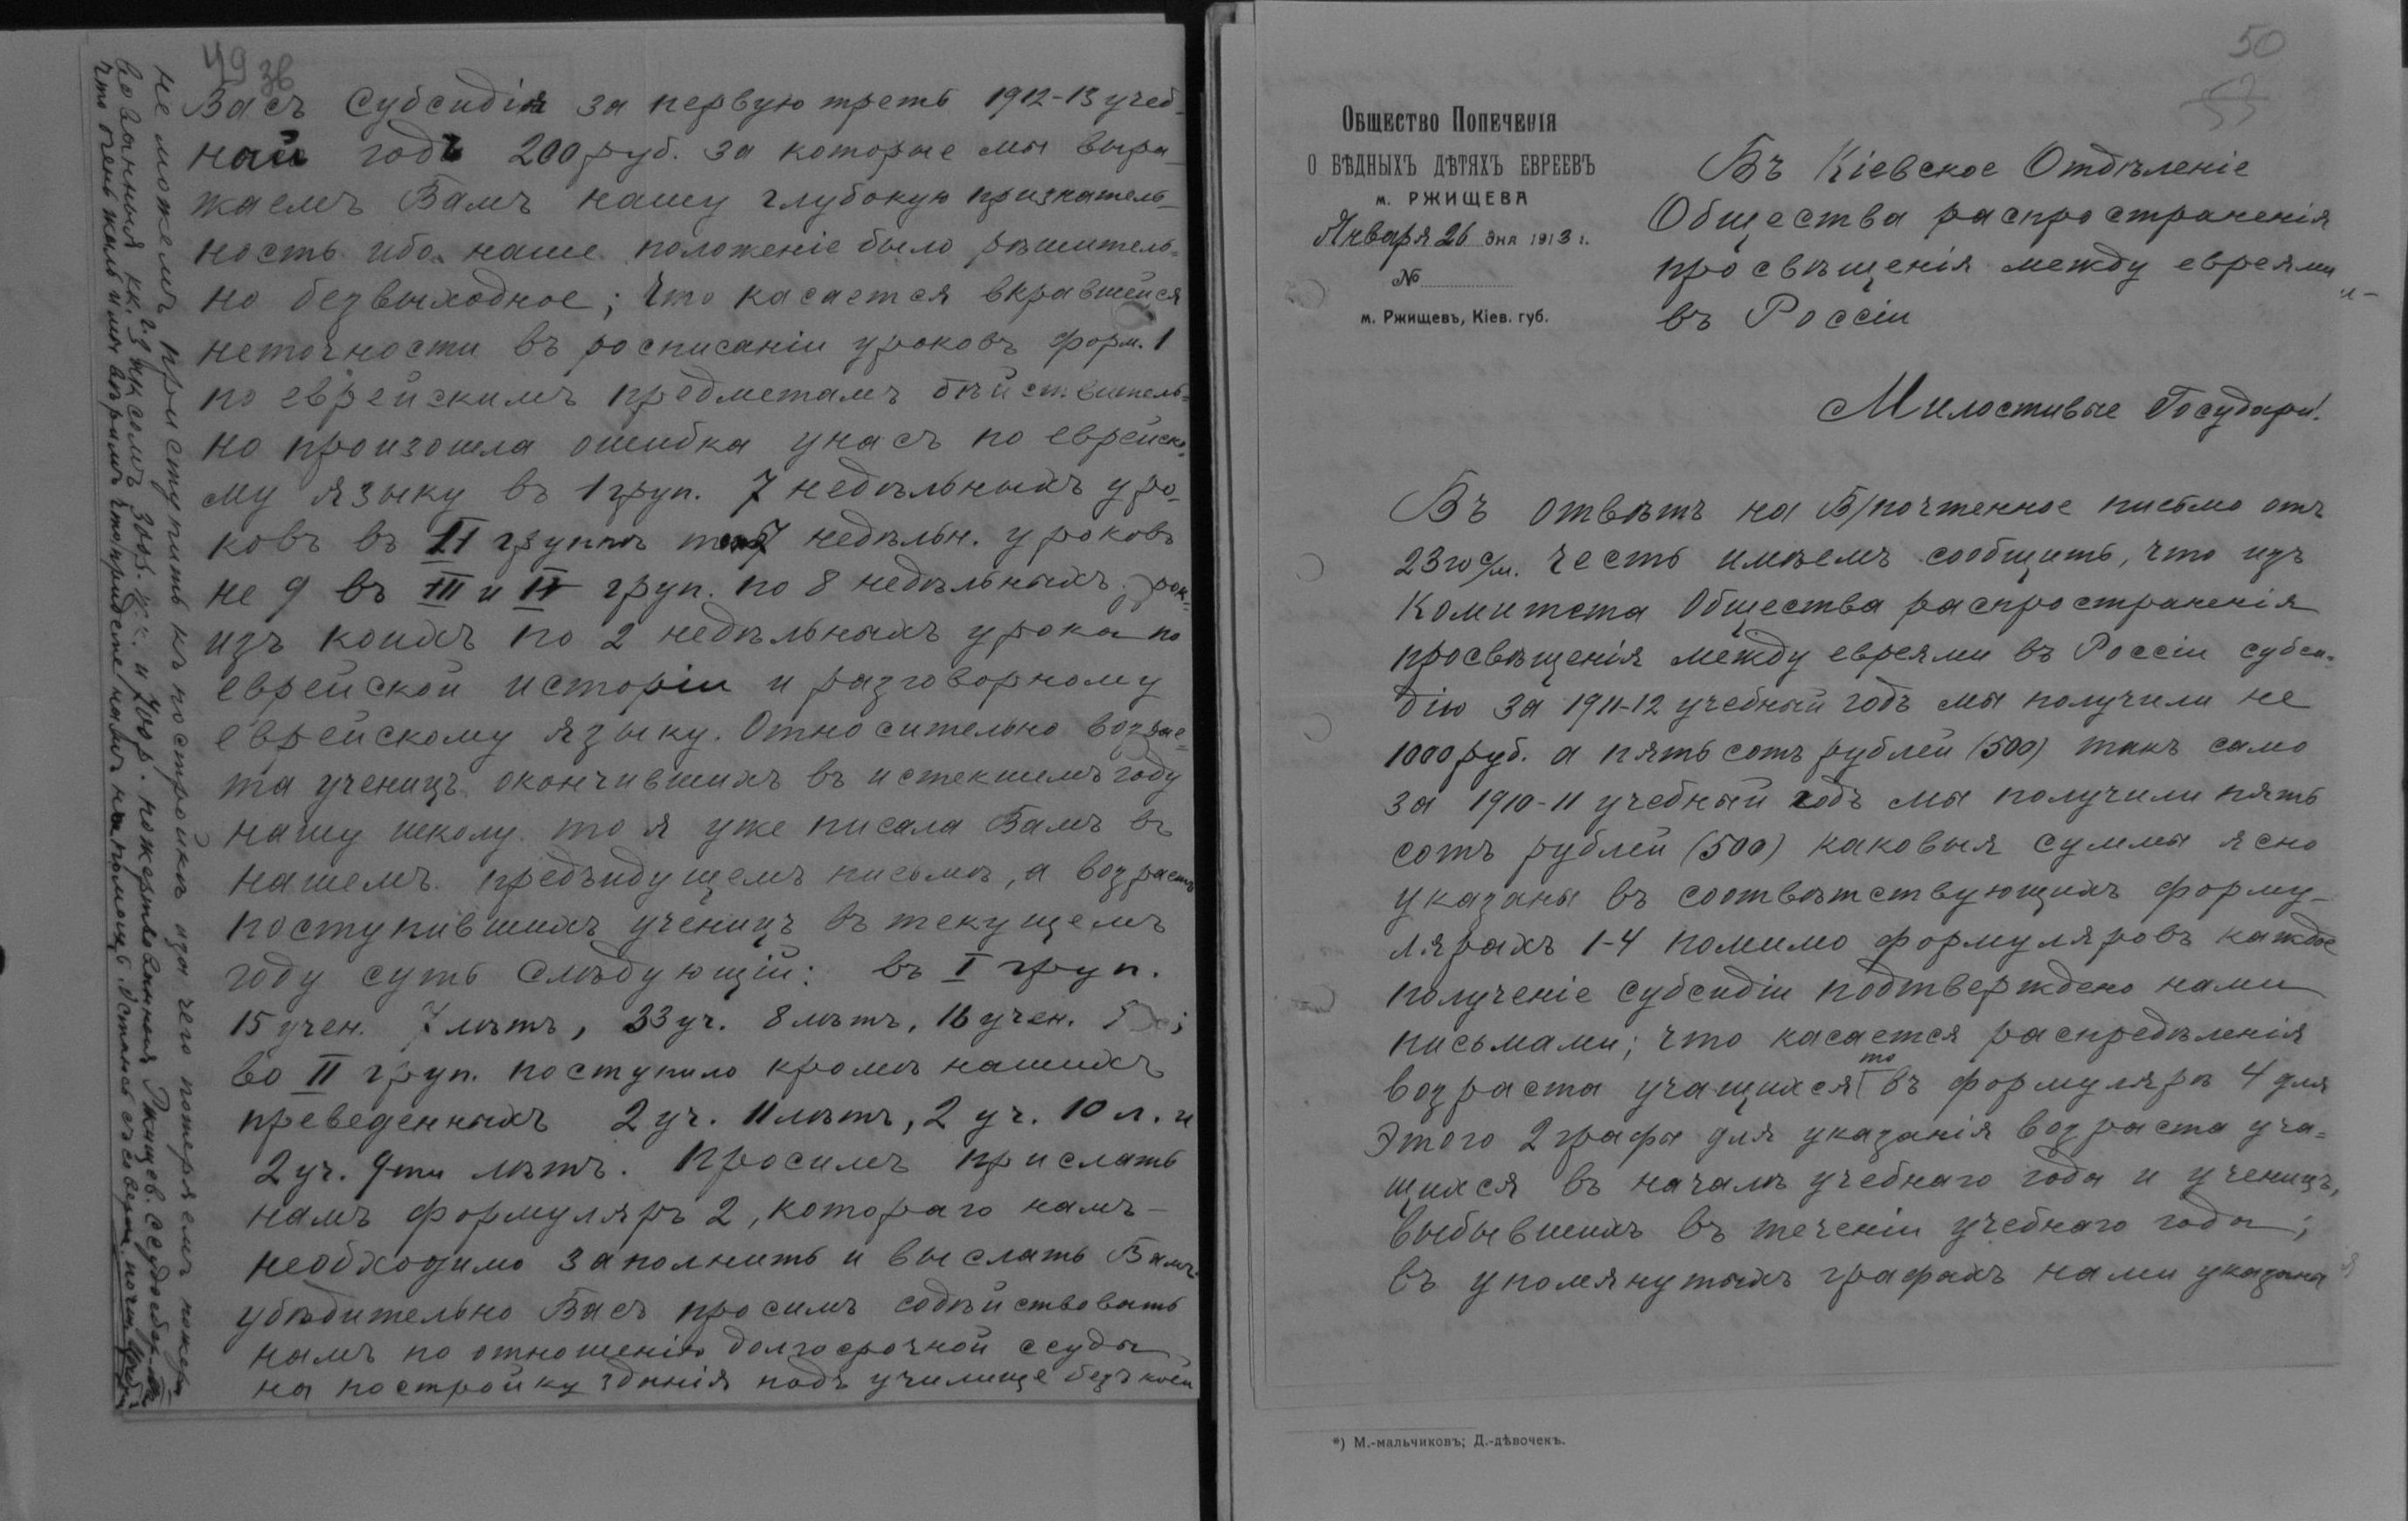 49 зв
Васъ Субсидія за первую треть 1912-13 учеб-
ный годъ 200 руб. за которые мы выра-
жаемъ Вамъ нашу глубокую признатель-
ность ибо наше положеніе было рѣшитель-
но безвыходное; Что касается вкравшейся
неточности въ росписаніи уроковъ форм. 1
по еврейскимъ предметамъ дѣйствитель-
но произошла ошибка унасъ по еврейско-
му языку въ 1 груп. 7 недѣльныхъ уро-
ковъ въ II группѣ 7 недѣльн. уроковъ
не 9 въ III и IV груп. по 8 недѣльныхъ
изъ коихъ по 2 недѣльныхъ урока по
еврейской исторіи и разговорному
еврейскому языку. Относительно возрас-
та ученицъ окончившихъ въ истекшемъ году
нашу школу. то я уже писала Вамъ въ
нашемъ предъидущемъ письмѣ, а возрастъ
поступившихъ ученицъ въ текущемъ
году суть слѣдующій: въ I груп.
15 учен. 7 лѣтъ, 33 уч. 8 лѣтъ, 16 учен.
во II груп. поступило кромѣ нашихъ
преведенныхъ 2 уч. 11 лѣтъ, 2 уч. 10 л. и
2 уч. 9ти лѣтъ. Просимъ прислать
намъ формуляръ 2, котораго намъ-
необходимо заполнить и выслать Вамъ.
убѣдительно Васъ просимъ содѣйствовать
намъ по отношенію долгосрочной ссуды
на постройку зданія подъ училище безъ коей
не можемъ приступить къ постройкѣ изъ чего потеряемъ пожерт
вованныя г. Зукселъ 300 р. и 200 р. пожертвованныя Ржищев.
что очень жаль и мы вѣримъ что придете намъ на помощь. Остаюсь съ
50
53
Общество Попеченія
О БѢДНЫХЪ ДѢТЯХЪ ЕВРЕЕВЪ
м. РЖИЩЕВА
Января 26 дня 1913 г.
№
м. Ржищевъ, Кіев. губ.
Въ Кіевское Отдѣленіе
Общества распространенія
просвѣщенія между евреями
въ Россіи
Милостивые Государи!
Въ отвѣтъ на В/почтенное письмо отъ
23го с/м. честь имѣемъ сообщить, что изъ
Комитета Общества распространенія
просвѣщенія между евреями въ Россіи субси-
дію за 1911-12 учебный годъ мы получили не
1000 руб. а пять сотъ рублей (500) такъ само
за 1910-11 учебный годъ мы получили пять
сотъ рублей (500) каковыя суммы ясно
указаны въ соотвѣтствующихъ форму-
лярахъ 1-4 помимо формуляровъ каждое
полученіе субсидіи подтверждено нами
письмами; что касается распредѣленія
возраста учащихся то въ формулярѣ 4 для
этого 2 графы для указанія возраста уча-
щихся въ началѣ учебнаго года и ученицъ,
выбывшихъ въ теченіи учебнаго года;
въ упомянутыхъ графахъ нами указана
*) М.-мальчиковъ; Д.-дѣвочекъ.